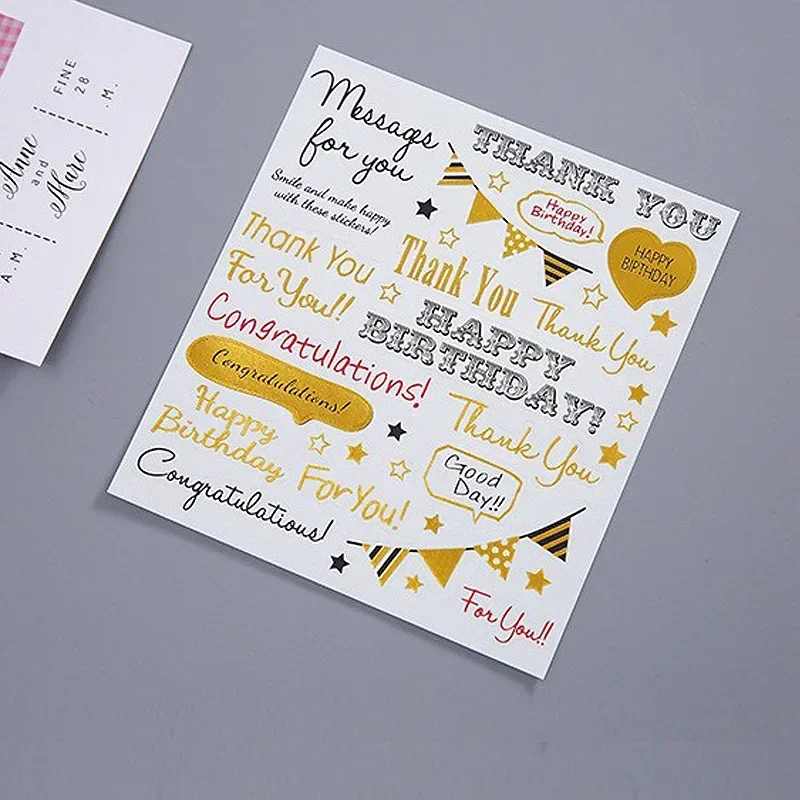 FINE
28
.M.
Anne
and
Marc
A.M.
Messages
for you
Smile and make happy
with these stickers!
THANK YOU
Happy
Birthday!
HAPPY
BIRTHDAY
Thank You
For You!!
Thank You
Thank You
HAPPY
BIRTHDAY!
Congratulations!
Congratulations!
Thank You
Happy
Birthday
For You!
Good
Day!!
Congratulations!
For You!!